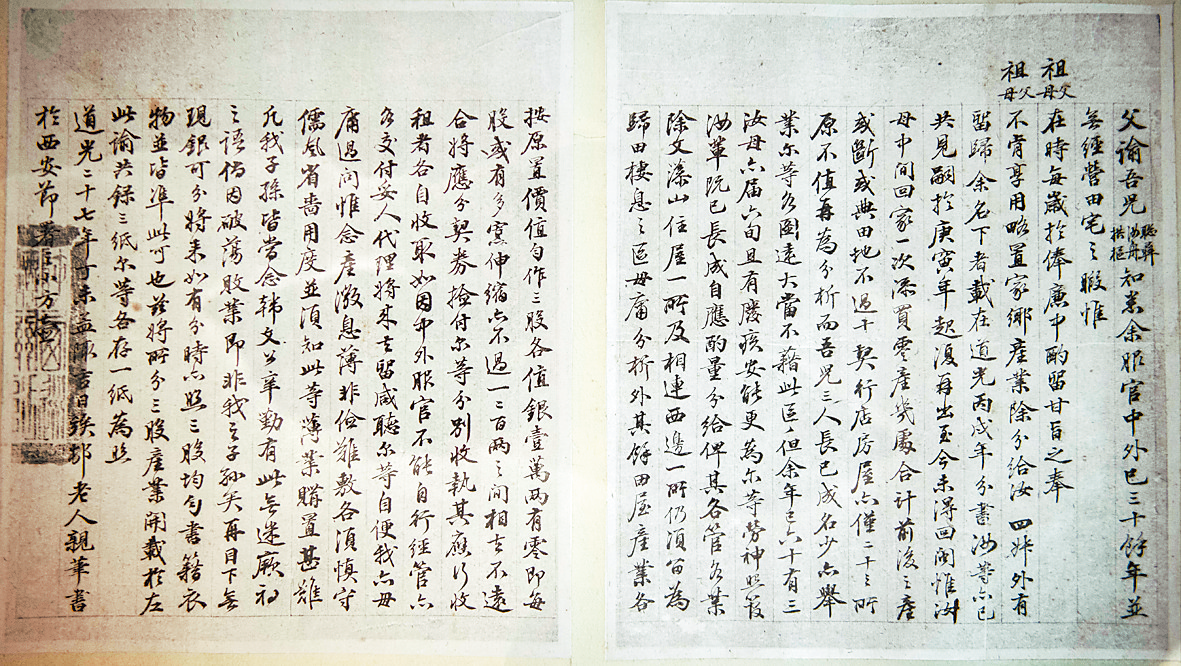 父諭吾兒聰彝汝舟拱樞知悉余服官中外已三十餘年並
無經營田宅之暇惟
祖父祖母在時每歲於俸廉中酌留甘旨之奉
祖父祖母不肯享用略置家鄉產業除分給汝四妹外有
留歸余名下者載在道光丙戌年分書汝等亦已
共見嗣於庚寅年起復再出至今未得回閩惟汝
母中間回家一次添買零產幾處合計前後之產
或斷或典田地不過十契行店房屋亦僅二十三所
原不值再為分析而吾兒三人長已成名少亦舉
業尔等各圖遠大當不藉此區區但余年已六十有三
汝母亦屆六旬且有勝疾安能更為尔等勞神照管
汝輩既已長成自應酌量分給俾其各管各業
除文藻山住屋一所及相連西邊一所仍須留為
歸田棲息之區毋庸分析外其餘田屋產業各
按原置價值勻作三股各值銀壹萬兩有零即每
股或有多寡伸縮亦不過一二百兩之間相去不遠
合將應分契券撿付尔等分別收執其應行收
租者各自收取如因中外服官不能自行經管亦
各交付妥人代理將來去留咸聽尔等自便我亦毋
庸過問惟念產微息薄非儉難敷各須慎守
儒風省嗇用度並須知此等薄業購置甚難
凡我子孫皆當念韓文公辛勤有此無迷厥初
之語倘因破蕩敗業即非我之子孫矣再目下無
現銀可分將來如有分時亦照三股均勻書籍衣
物並皆準此可也茲將所分三股產業開載於左
此諭共錄三紙尔等各存一紙為照
道光二十七年丁未孟陬吉日竢邨老人親筆書
於西安節署之小方壺